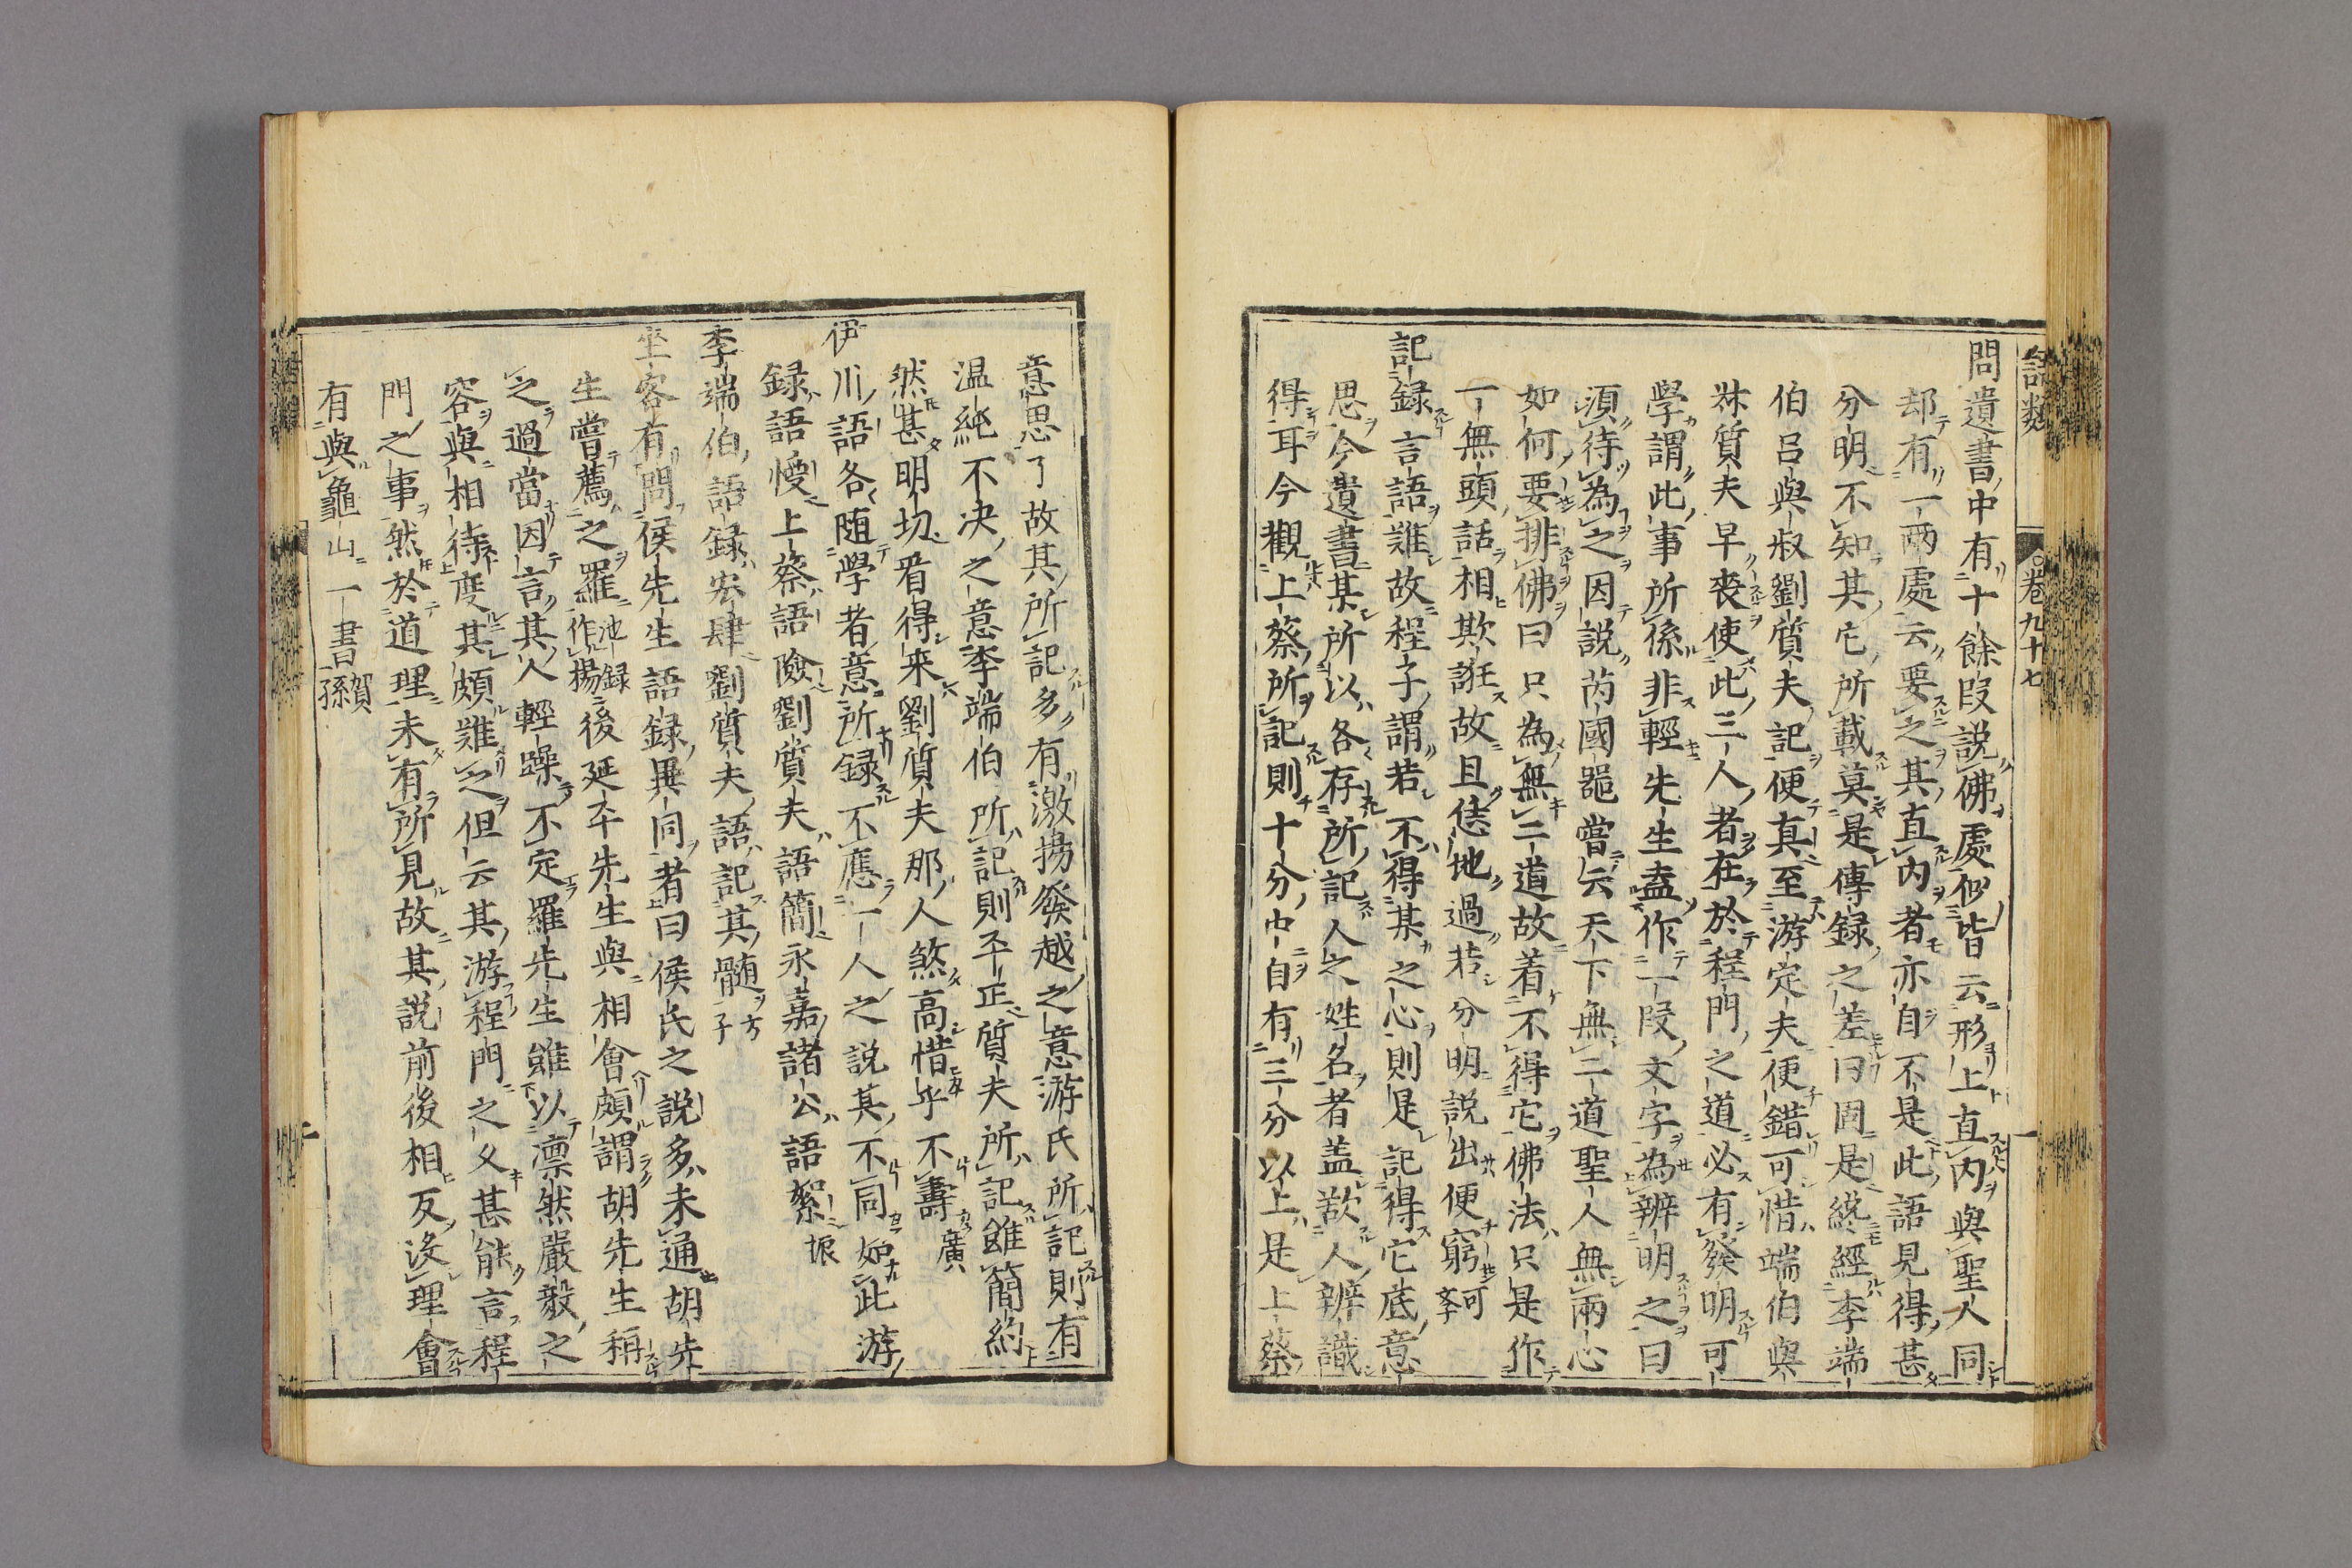 語類
○卷九十七
一
問遺書中有十餘段説佛處似皆云形上直内與聖人同
却有一兩處云要之其直内者亦自不是此語見得甚
分明不知其它所載莫是傳錄之差曰固是纔經李端
伯呂與叔劉質夫記便真至游定夫便錯可惜端伯與
叔質夫早喪使此三人者在於程門之道必有發明可
學謂此事所係非輕先生盍作一段文字為辨明之曰
須待為之因説芮國噐嘗云天下無二道聖人無兩心
如何要排佛曰只為無二道故着不得它佛法只是作
一無頭話相欺誑故且恁地過若分明説出便窮可學
記録言語難故程子謂若不得某之心則是記得它底意
思今遺書某所以各存所記人之姓名者盖欲人辨識
得耳今觀上蔡所記則十分中自有三分以上是上蔡
意思了故其所記多有激揚發越之意游氏所記則有
温純不决之意李端伯所記則平正質夫所記雖簡約
然甚明切看得来劉質夫那人煞高惜乎不壽廣
伊川語各随學者意所録不應一人之説其不同如此游
録語慢上蔡語險劉質夫語簡永嘉諸公語絮振
李端伯語録宏肆劉質夫語記其髓方子
坐客有問侯先生語録異同者曰侯氏之説多未通胡先
生嘗薦之羅池録作揚後延平先生與相會頗謂胡先生稱
之過當因言其人輕躁不定羅先生雖以凛然嚴毅之
容與相待度其頗難之但云其游程門之久甚能言程
門之事然於道理未有所見故其説前後相反没理會
有與龜山一書賀孫